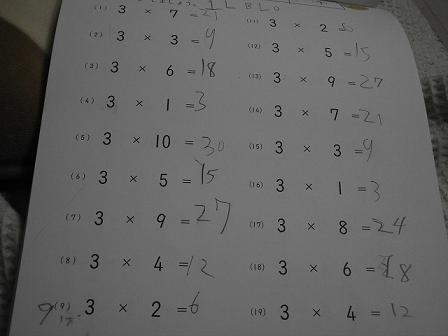 (1) 3 × 7 = 21
(2) 3 × 3 = 9
(3) 3 × 6 = 18
(4) 3 × 1 = 3
(5) 3 × 10 = 30
(6) 3 × 5 = 15
(7) 3 × 9 = 27
(8) 3 × 4 = 12
(9) 3 × 2 = 6
(11) 3 × 2
(12) 3 × 5 = 15
(13) 3 × 9 = 27
(14) 3 × 7 = 21
(15) 3 × 3 = 9
(16) 3 × 1 = 3
(17) 3 × 8 = 24
(18) 3 × 6 = 18
(19) 3 × 4 = 12